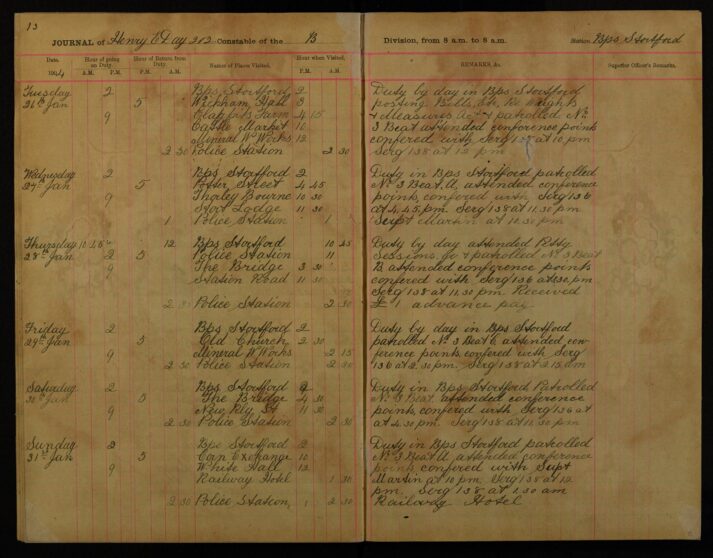 13
JOURNAL of Henry E Day 202 Constable of the B
Date. Hour of going on Duty. Hour of Return from Duty. Names of Places Visited. Hour when Visited.
A.M. P.M. A.M. P.M. P.M. A.M.
Tuesday 2 Bps Stortford 2
26th Jan 5 Wickham Hall 3
9 Farm 4 15
Cattle Market 10
Mineral W Works 12
2 30 Police Station 2 30
Wednesday 2 Bps Stortford 2
27th Jan 5 Potter Street 4 45
9 Thorley Bourne 10 30
Stort Lodge 11 30
1 Police Station 1
Thursday 10 45 12 Bps Stortford 10 45
28th Jan 2 5 Police Station 11
9 The Bridge 3 30
Station Road 11 30
2 30 Police Station 2 30
Friday 2 Bps Stortford 2
29th Jan 5 Old Church 2 30
9 Mineral W Works 2 15
2 30 Police Station 2 30
Saturday 2 Bps Stortford 2
30th Jan 5 The Bridge 4 30
9 New Rly St 11 30
2 30 Police Station 2 30
Sunday 2 Bps Stortford 2
31st Jan 5 Corn Exchange 10
9 White Hall 12
Railway Hotel 1 30
2 30 Police Station 2 30
Division, from 8 a.m. to 8 a.m. Station Bps Stortford
REMARKS, &c. Superior Officer's Remarks.
Duty by day in Bps Stortford
posting Bills, etc. Re Weights
& Measures Act & patrolled No
3 Beat attended conference points
confered with Serg 138 at 10 pm
Serg 138 at 12 pm
Duty in Bps Stortford patrolled
No 3 Beat, A, attended conference
points, confered with Serg 136
at 4.45 pm. Serg 138 at 11.30 pm
Supt Martin at 10.30 pm
Duty by day attended Petty
Sessions, & patrolled No 3 Beat
B attended conference points
confered with Serg 136 at 3.30 pm
Serg 138 at 11.30 pm Received
£1 advance pay
Duty by day in Bps Stortford
patrolled No 3 Beat C attended con-
ference points, confered with Serg
136 at 2.30 pm. Serg 138 at 2.15 am
Duty in Bps Stortford Patrolled
No 3 Beat. attended conference
points, confered with Serg 136 at
at 4.30 pm. Serg 138 at 11.30 pm
Duty in Bps Stortford patrolled
No 3 Beat A attended conference
points, confered with Supt
Martin at 10 pm. Serg 138 at 12
pm. Serg 138 at 1.30 am
Railway Hotel